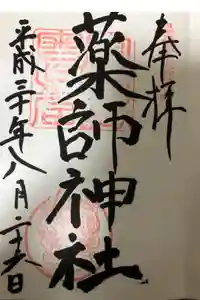 奉拝
薬師神社
平成三十年八月二十日